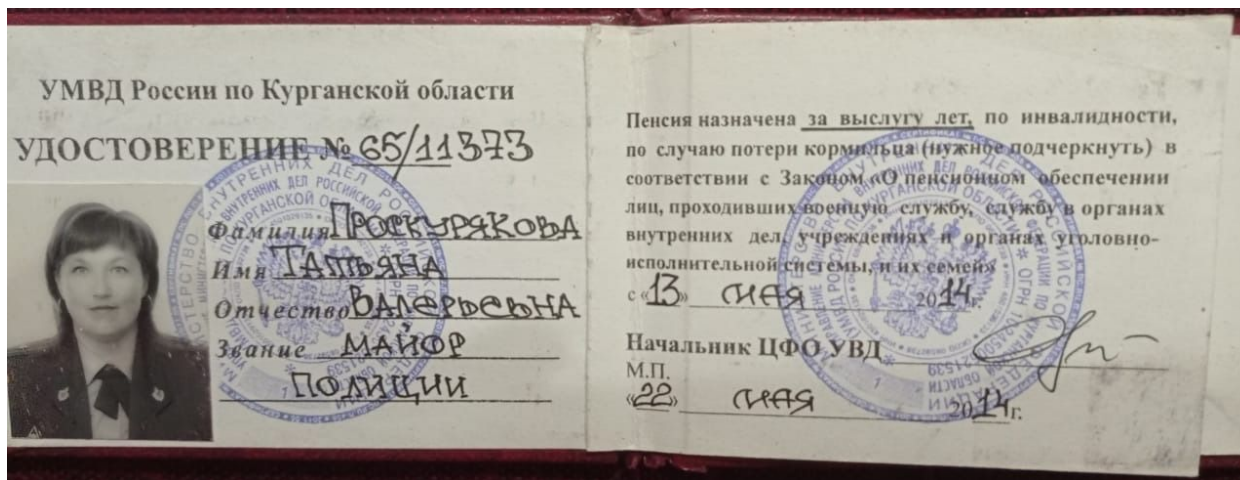 УМВД России по Курганской области
УДОСТОВЕРЕНИЕ № 65/11373
Фамилия Проскурякова
Имя Татьяна
Отчество Валерьевна
Звание майор
полиции
Пенсия назначена за выслугу лет, по инвалидности,
по случаю потери кормильца (нужное подчеркнуть) в
соответствии с Законом «О пенсионном обеспечении
лиц, проходивших военную службу, службу в органах
внутренних дел, учреждениях и органах уголовно-
исполнительной системы, и их семей»
с «13» мая 2014г.
Начальник ЦФО УВД
М.П.
«22» мая 2014г.